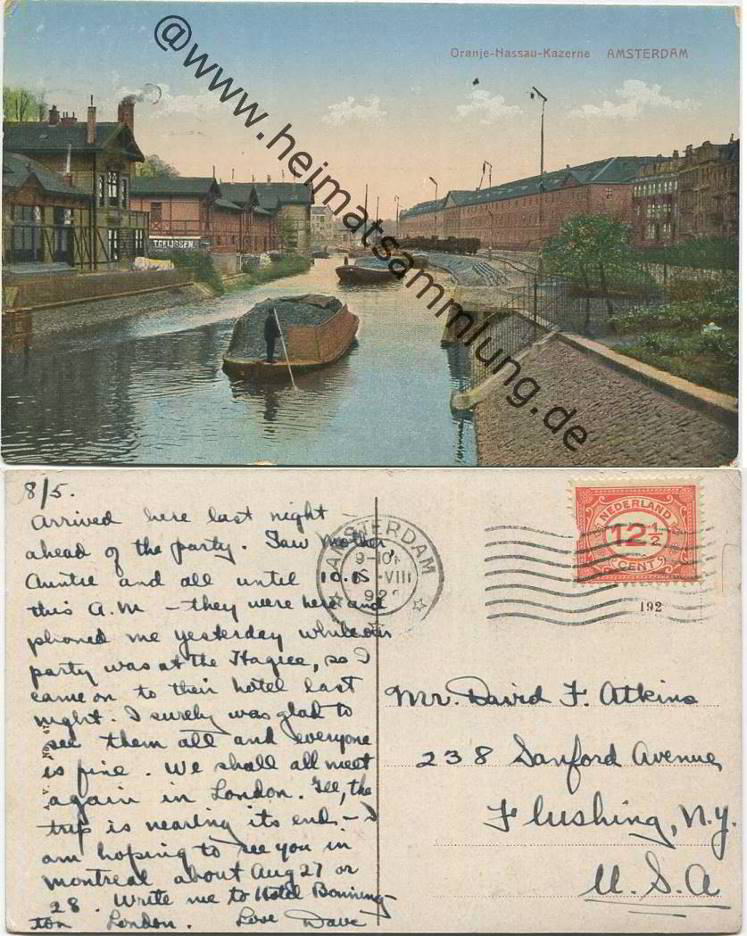 Oranje-Nassau-Kazerne AMSTERDAM
@www.heimatsammlung.de
8/5.
Arrived here last night -
ahead of the party. Saw Mother,
Auntie and all until 10.05
this A.M - they were here and
phoned me yesterday while our
party was at the Hague, so I
came on to their hotel last
night. I surely was glad to
see them all and everyone
is fine. We shall all meet
again in London. Gee, the
trip is nearing its end - I
am hoping to see you in
Montreal about Aug 27 or
28. Write me to Hotel Bonning-
ton London. Love Dave
AMSTERDAM
VIII
NEDERLAND
12 1/2
CENT
192
Mr. David F. Atkins
238 Sanford Avenue,
Flushing, N.Y.
U.S.A